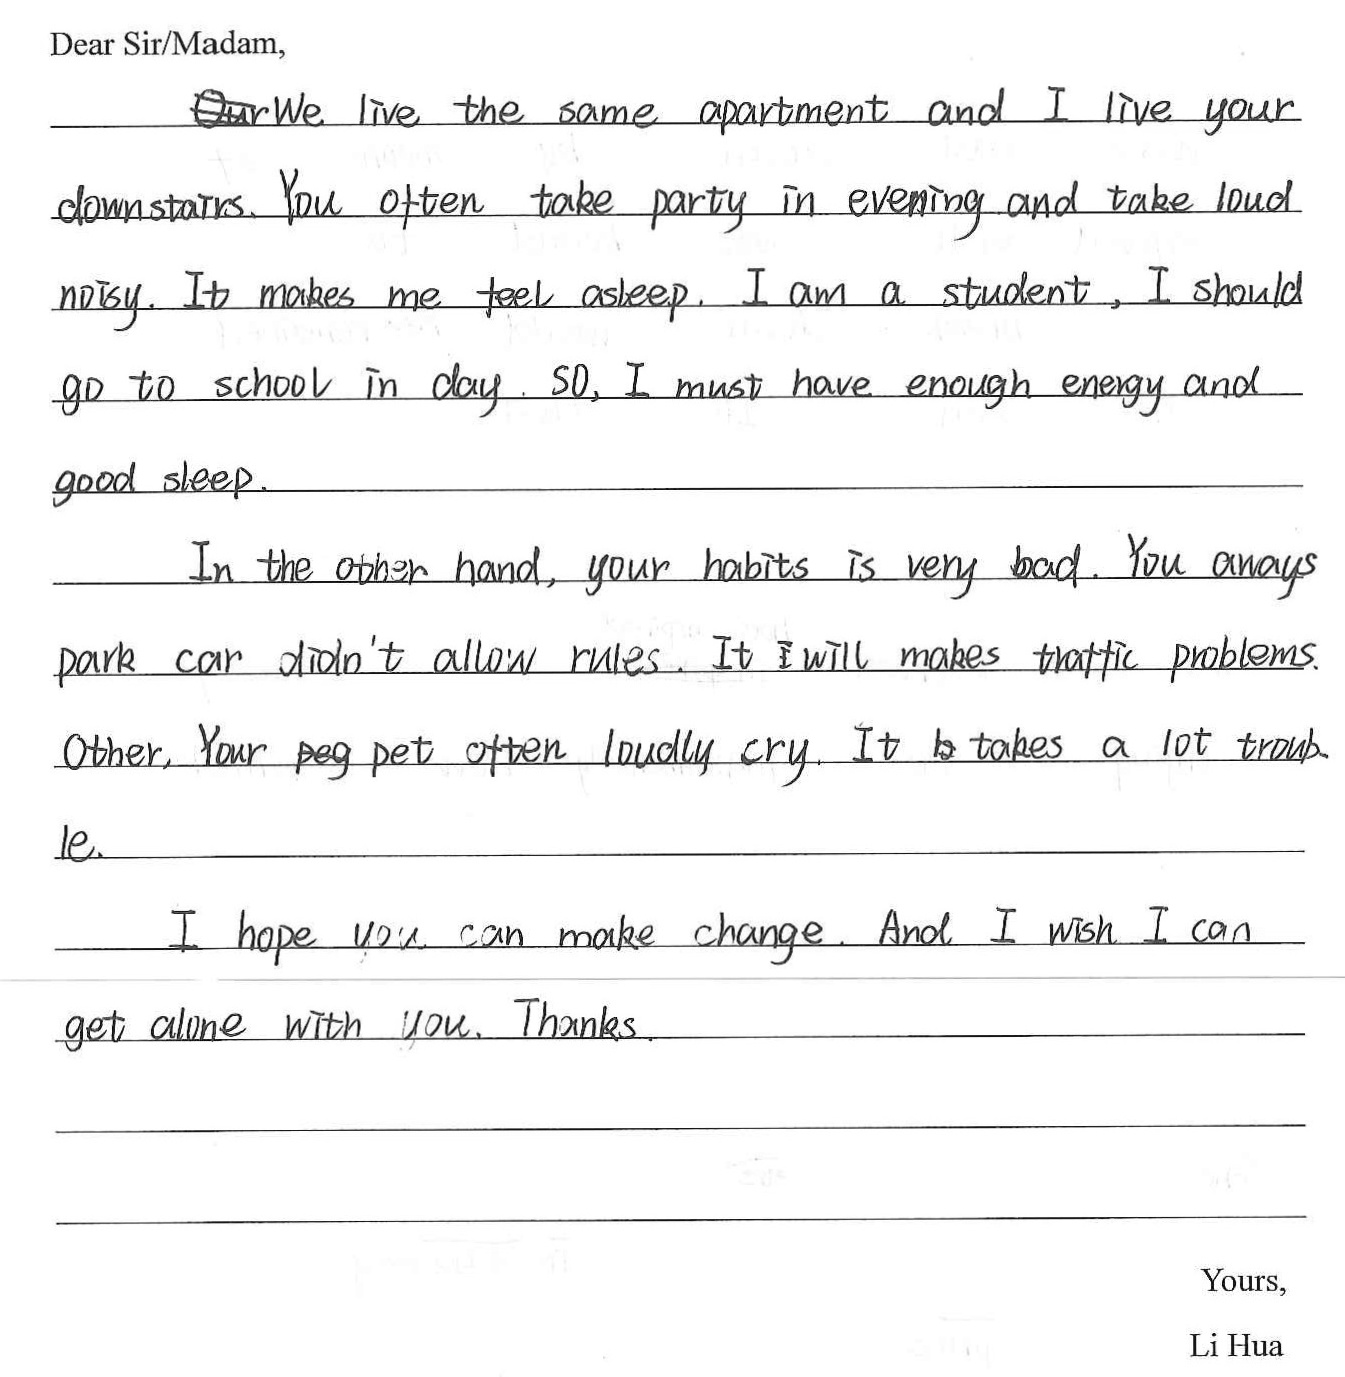 Dear Sir/Madam,
We live the same apartment and I live your
downstairs. You often take party in evening and take loud
noisy. It makes me feel asleep. I am a student, I should
go to school in day. So, I must have enough energy and
good sleep.
In the other hand, your habits is very bad. You aways
park car didn't allow rules. It will makes traffic problems.
Other, Your pet often loudly cry. It takes a lot troub-
le.
I hope you can make change. And I wish I can
get alone with you. Thanks.
Yours,
Li Hua